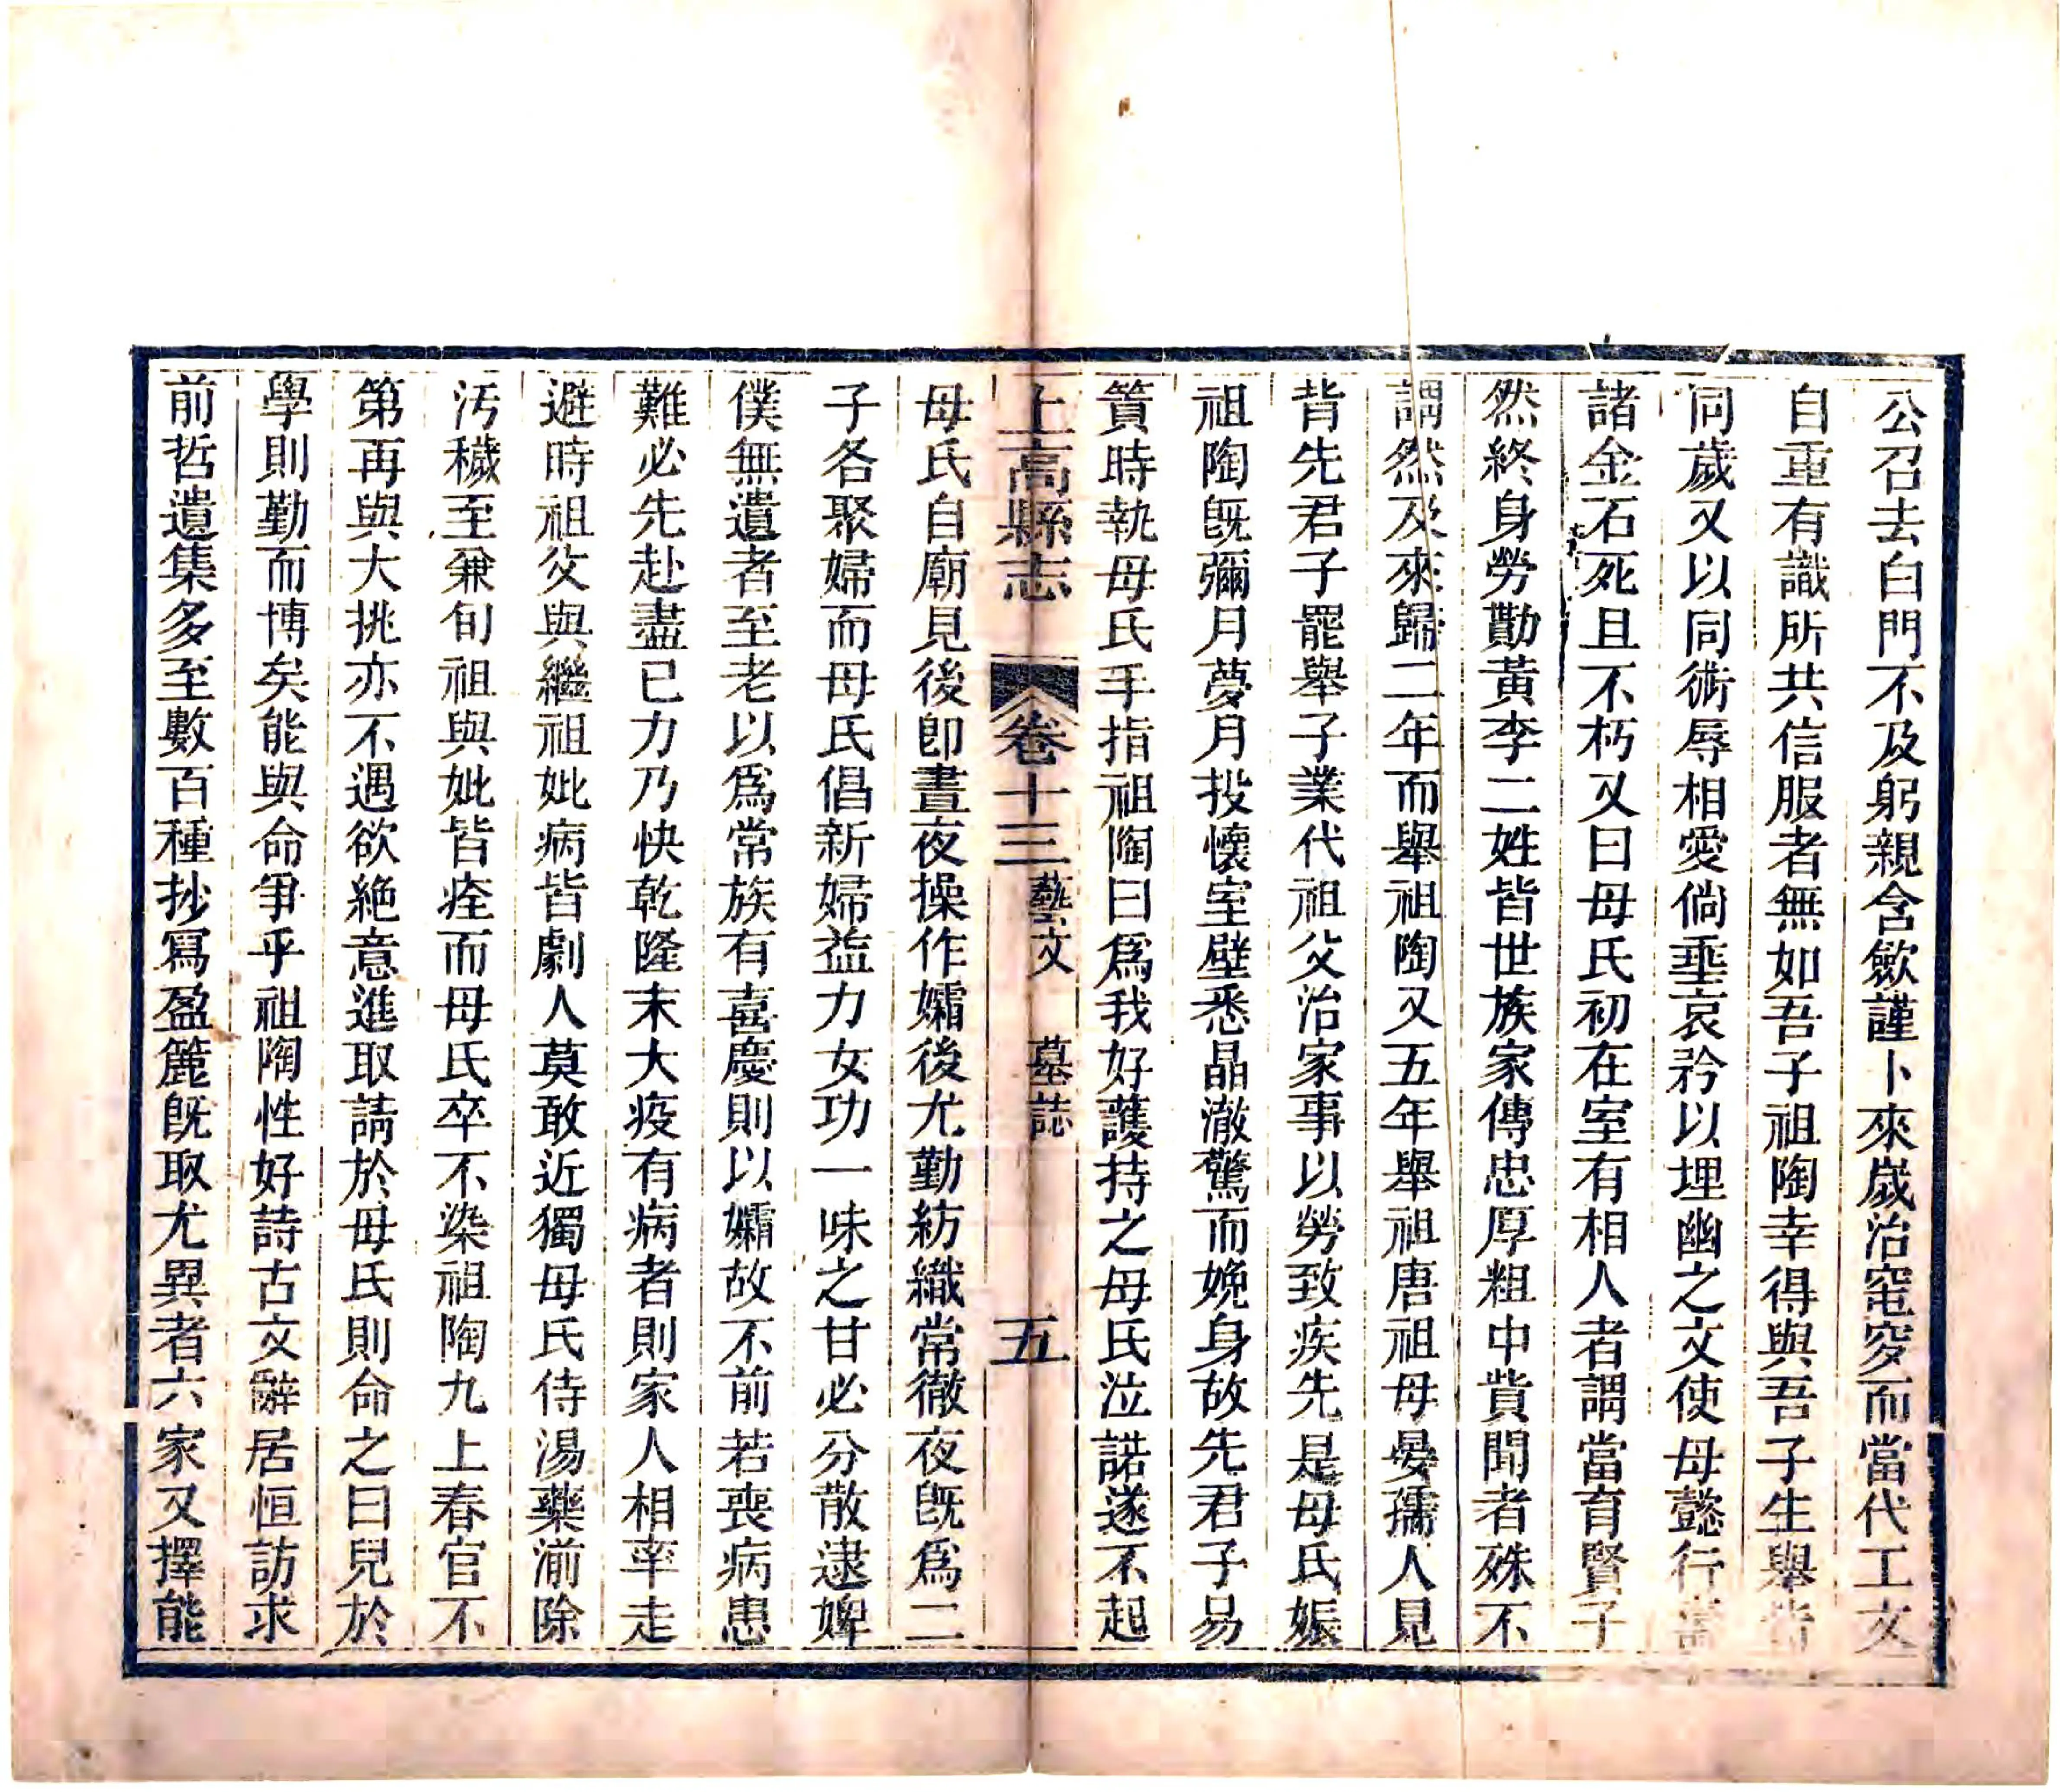 公召去白門不及躬親含歛謹卜來歲治窀穸而當代工文
自重有識所共信服者無如吾子祖陶幸得與吾子生舉皆
同歲又以同術辱相愛倘垂哀矜以埋幽之文使母懿行
諸金石死且不朽又曰母氏初在室有相人者謂當育賢子
然終身勞勩黃李二姓皆世族家傳忠厚粗中貲聞者殊不
謂然及來歸二年而舉祖陶又五年舉祖唐祖母晏孺人見
背先君子罷舉子業代祖父治家事以勞致疾先是母氏娠
祖陶旣彌月夢月投懷室壁悉晶澈驚而娩身故先君子易
簀時執母氏手指祖陶曰爲我好護持之母氏泣諾遂不起
上高縣志 卷十三 藝文 墓誌 五
母氏自廟見後卽晝夜操作孀後尤勤紡織常徹夜旣爲二
子各聚婦而母氏倡新婦益力女功一味之甘必分散逮婢
僕無遺者至老以爲常族有喜慶則以孀故不前若喪病患
難必先赴盡已力乃快乾隆末大疫有病者則家人相率走
避時祖父與繼祖妣病皆劇人莫敢近獨母氏侍湯藥湔除
汚穢至兼旬祖與妣皆痊而母氏卒不染祖陶九上春官不
第再與大挑亦不遇欲絶意進取請於母氏則命之曰兒於
學則勤而博矣能與命爭乎祖陶性好詩古文辭居恒訪求
前哲遺集多至數百種抄寫盈簏旣取尤異者六家又擇能